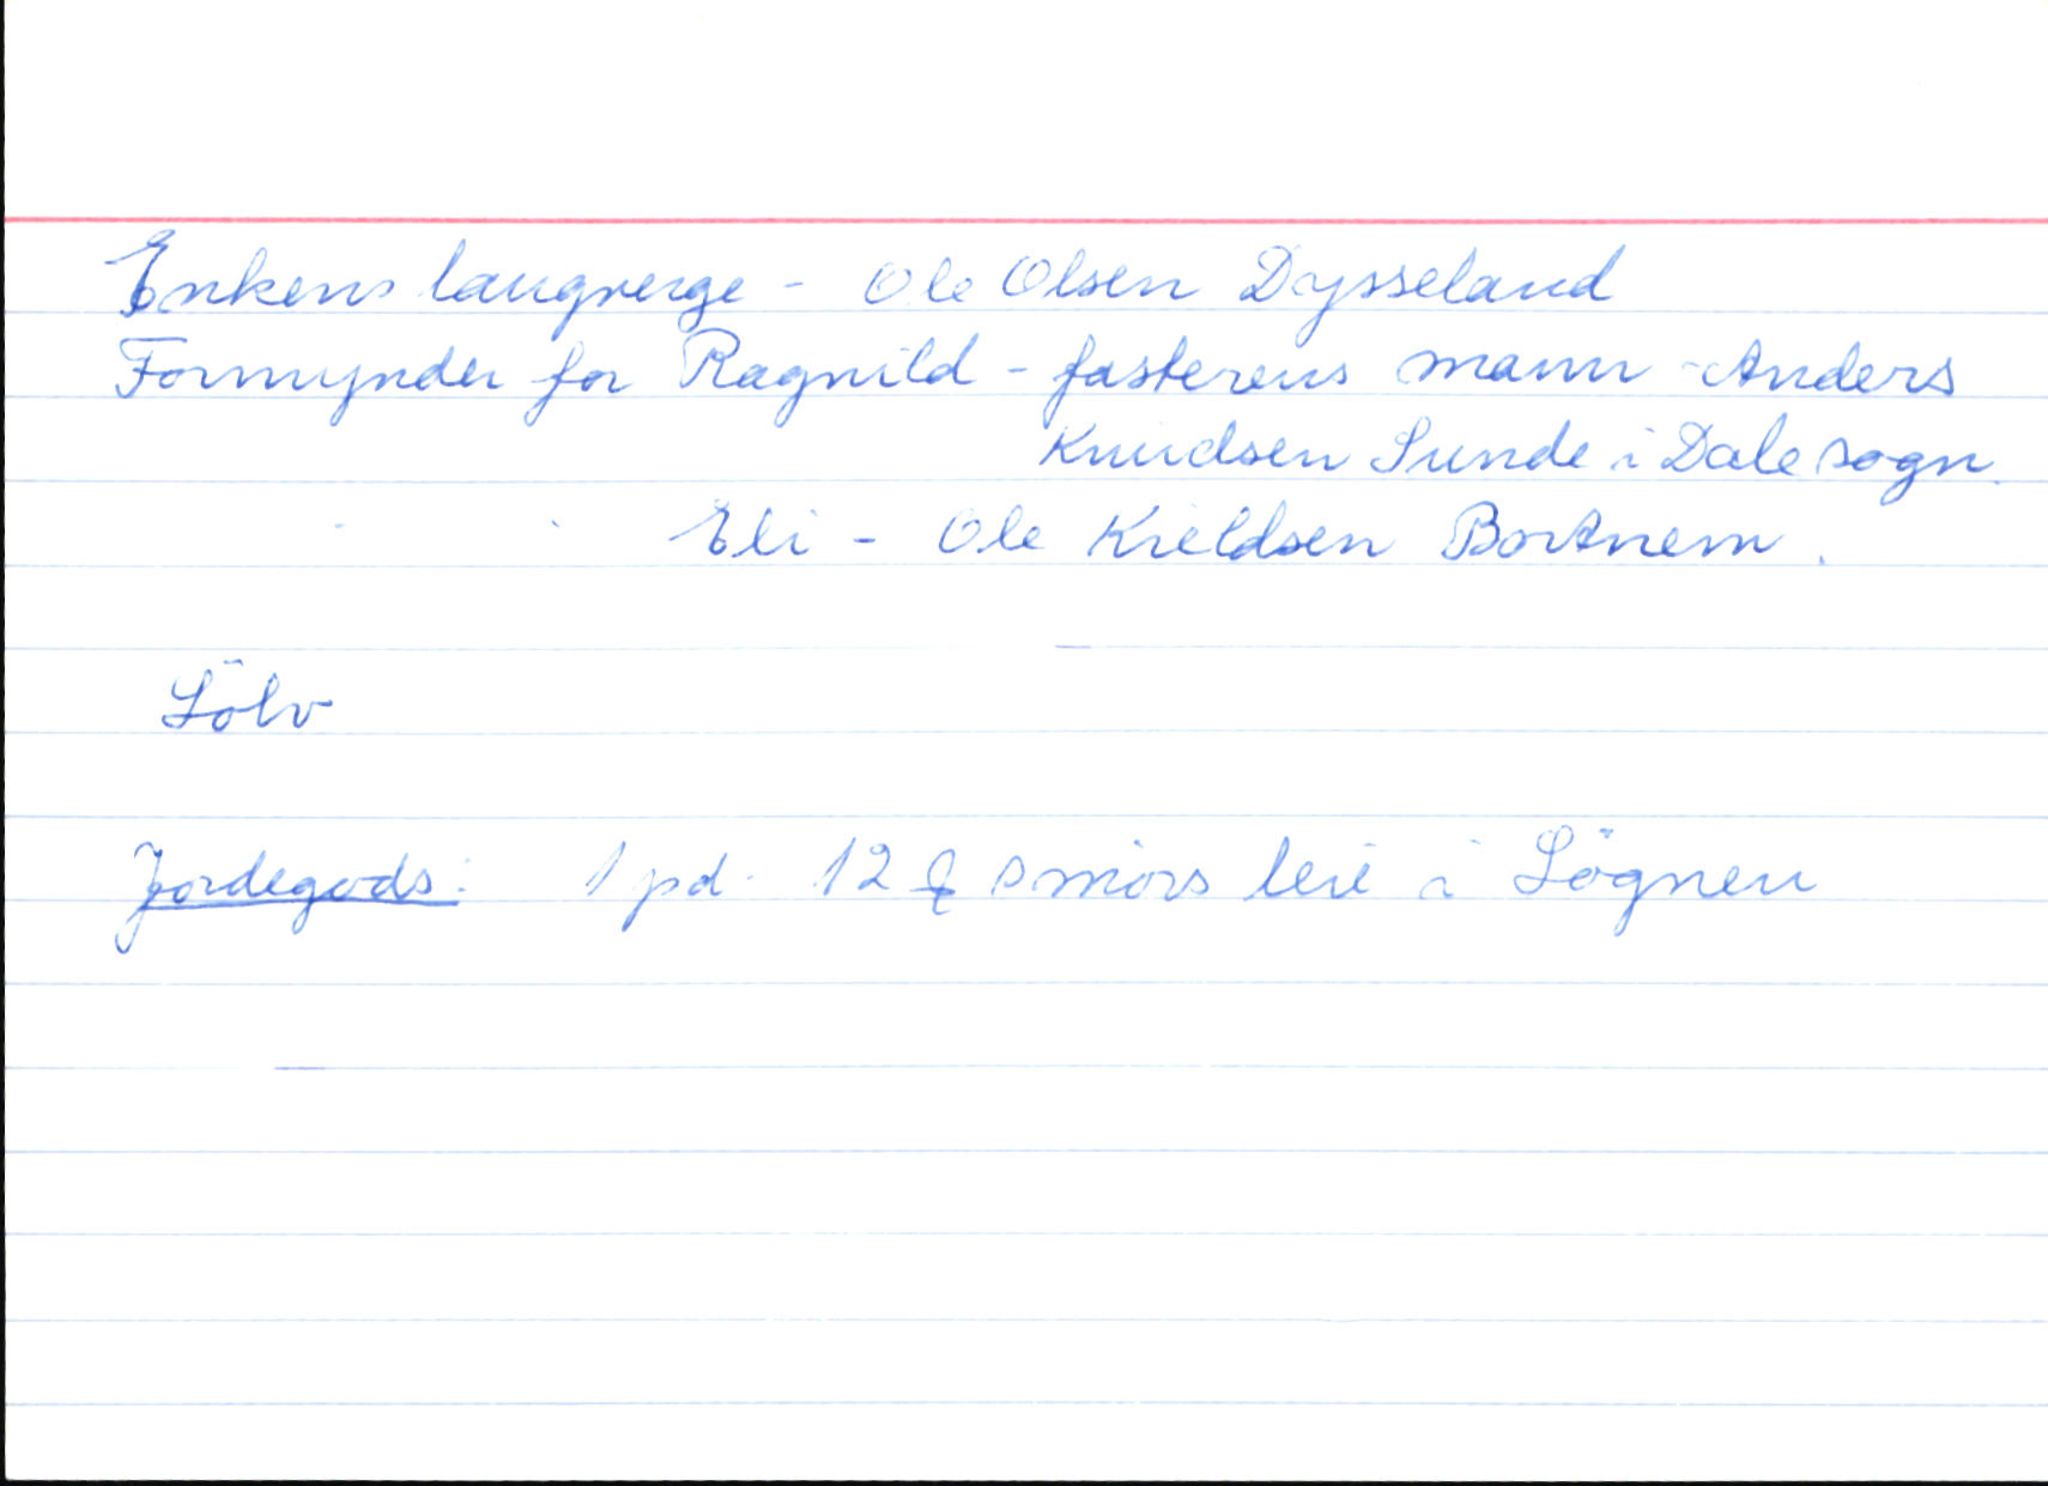 Enkens laugverge - Ole Olsen Dysseland
Formynder for Ragnild - fasterens mann - Anders
Knudsen Sunde i Dale sogn.
" " Eli - Ole Kieldsen Bortnem.
Sölv
Jordegods: 1 pd. 12 ℔ smörs leie i Lögnen